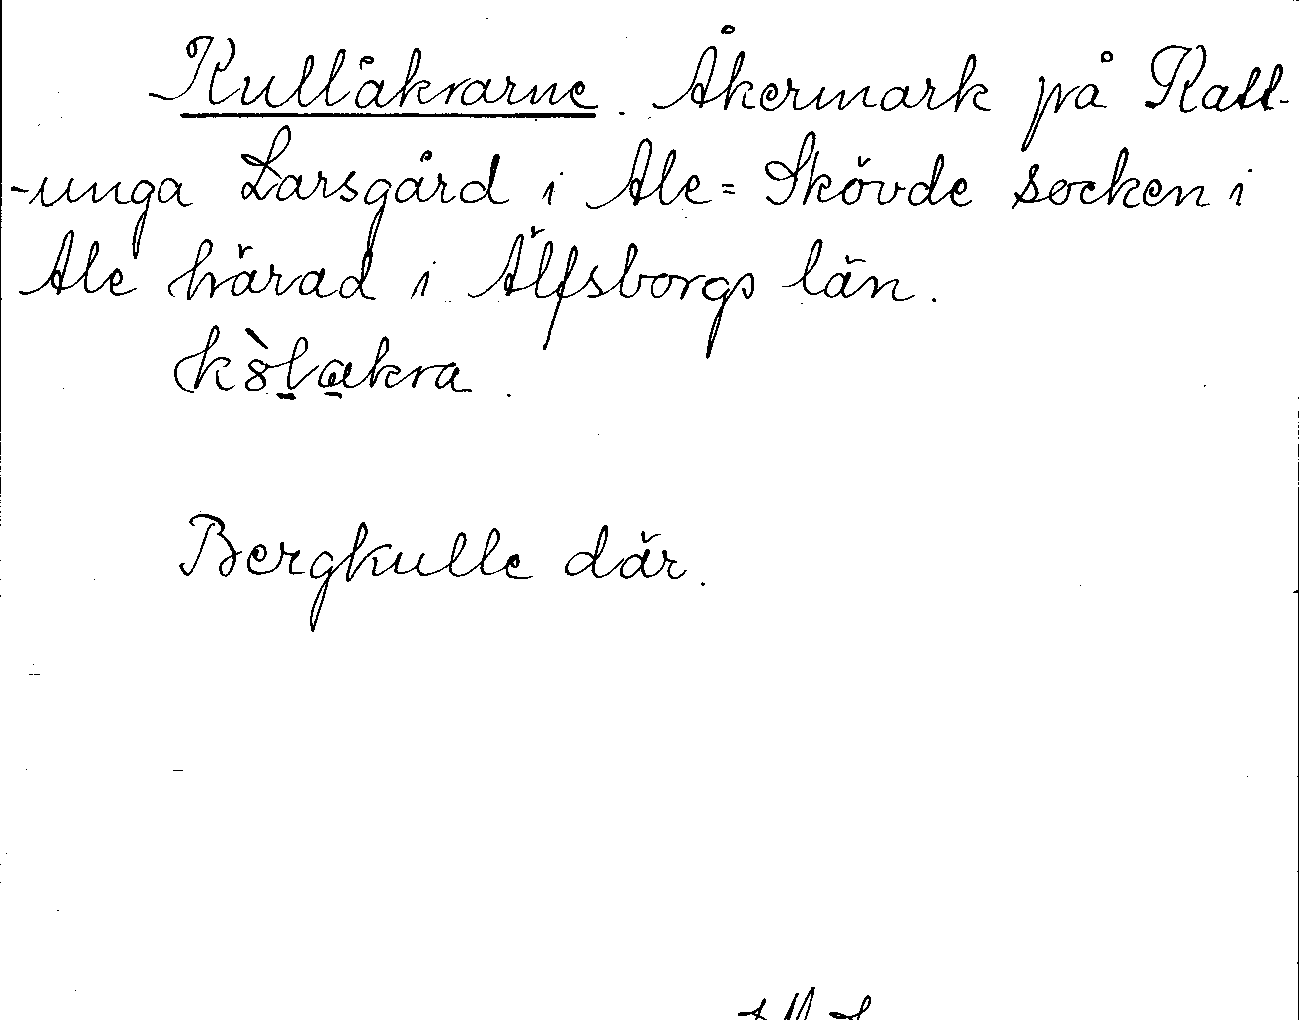 Kullåkrarne. Åkermark på Ratt-
-unga Larsgård i Ale=Skövde socken i
Ale härad i Älfsborgs län.
Bergkulle där.